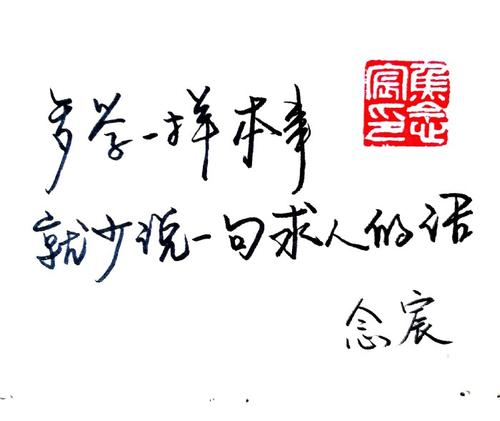 多学一样本事
就少说一句求人的话
念宸
焦念宸印